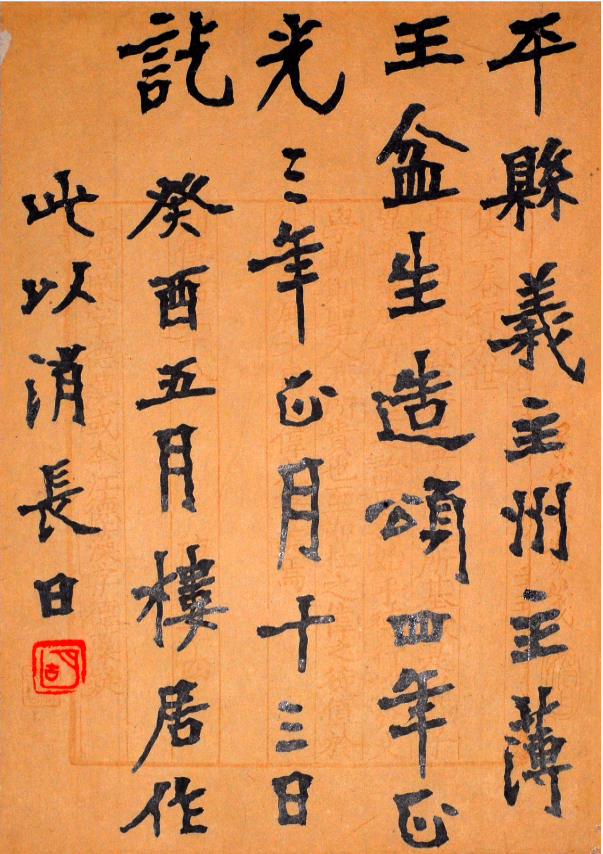 平縣義主州主薄
王盆生造頌四年正
光三年正月十三日
訖
癸酉五月樓居作
此以消長日